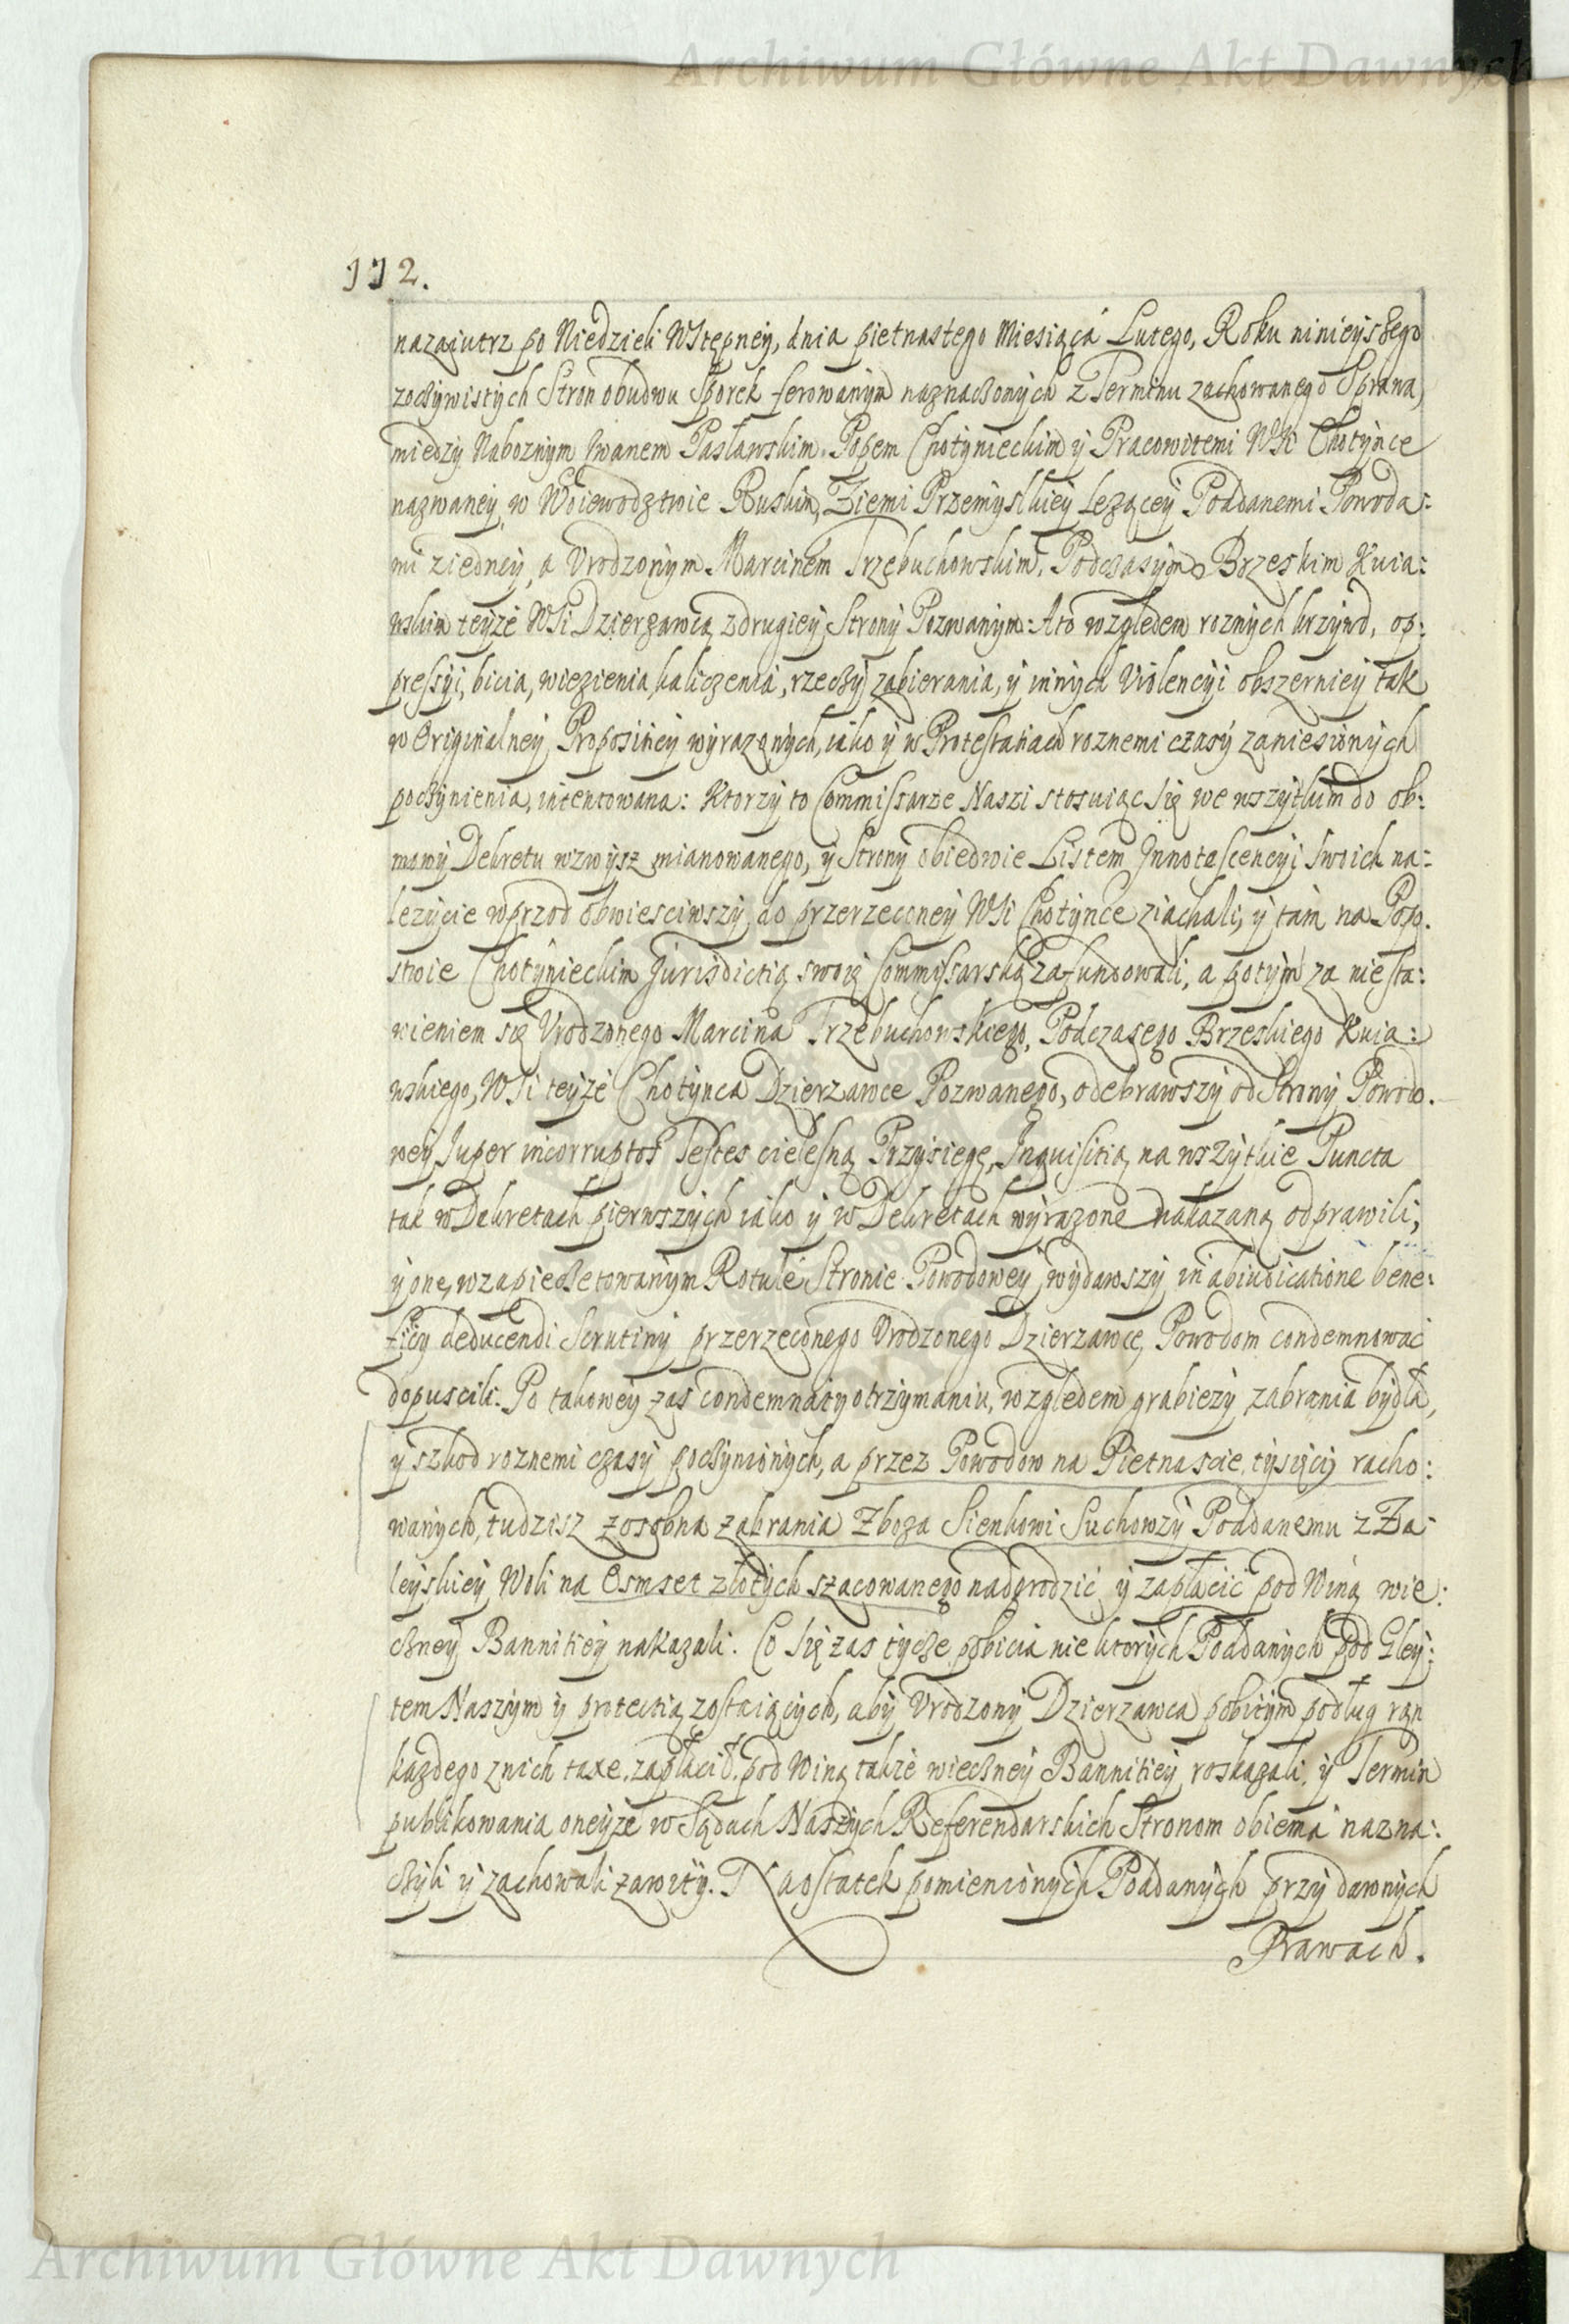 Archiwum Główne Akt Dawnych
112.
nazajutrz po Niedzieli Wstępney, dnia pietnastego Miesiąca Lutego, Roku ninieyszego
zoczywistych Stron obudwu Sporek ferowanym naznaczonych z Terminu zachowanego Sprawa,
miedzy Naboznym Iwanem Pasławskim Popem Chotynieckim y Pracowitemi Wsi Chotynce
nazwaney, w Woiewodztwie Ruskim, Ziemi Przemyslkiey lezącey Poddanemi Powoda:
mi ziedney, a Vrodzonym Marcinem Trzebuchowskim, Podczasym Brzeskim Kuia:
wskim teyże Wsi Dzierzawcą zdrugiey Strony Pozwanym: A to względem roznych krzywd, op:
pressyi, bicia, wiezienia, kaliczenia, rzeczy zabierania, y innych Violencyi obszerniey tak
w Originalney Propositiey wyrazonych, iako y w Protestatiach roznemi czasy zaniesionych
poczynienia, intentowana: Ktorzy to Commissarze Naszi stosuiąc się we wszytkim do ob:
mowy Dekretu wzwysz mianowanego, y Strony obiedwie Listem Innotescencyi swoich na:
lezycie wprzod obwiesciwszy do przerzeconey Wsi Chotynce ziachali, y tam na Pop.
stwie Chotynieckim Jurisdictią swoię Commissarską zafundowali, a potym za niesta:
wieniem się Vrodzonego Marcina Trzebuchowskiego, Podczasego Brzeskiego Kuia:
wskiego, Wsi teyże Chotynca Dzierzawce Pozwanego, odebrawszy od Strony Powodo.
wey Super incorruptos Testes cielesną Przysiegę, Inquisitią na wszytkie Puncta
tak w Dekretach pierwszych iako y w Dekretach wyrazone nakazaną odprawili,
y onę, wzapieczetowanym Rotule Stronie Powodowey wydawszy in abiudicatione bene:
ficy deducendi Scrutiny przerzeconego Vrodzonego Dzierzawcę, Powodom condemnować
dopuscili. Po takowey zas condemnaty otrzymaniu, względem grabiezy zabrania bydła,
y szkod roznemi czasy poczynionych, a przez Powodow na Pietnascie tysięcy racho:
wanych, tudzisz zosobna zabrania Zboza Sienkowi Suchowzy Poddanemu z Za:
leyskiey Woli na Osmset złotych szacowanego nadgrodzić y zapłacić pod Winą wie:
czney Bannitiey nakazali. Co się zas tycze pobicia niektorych Poddanych pod Gley:
tem Naszym y protectią zostaiących, aby Vrodzony Dzierzawca pobitym podług ran
kazdego znich taxe zapłacił, pod Winą takze wieczney Bannitiey roskazali, y Termin
publikowania oneyże w Sądach Naszych Referendarskich Stronom obiema nazna:
czyli y zachowali zawity. Naostatek pomienionych Poddanych przy dawnych
Prawach.
Archiwum Główne Akt Dawnych